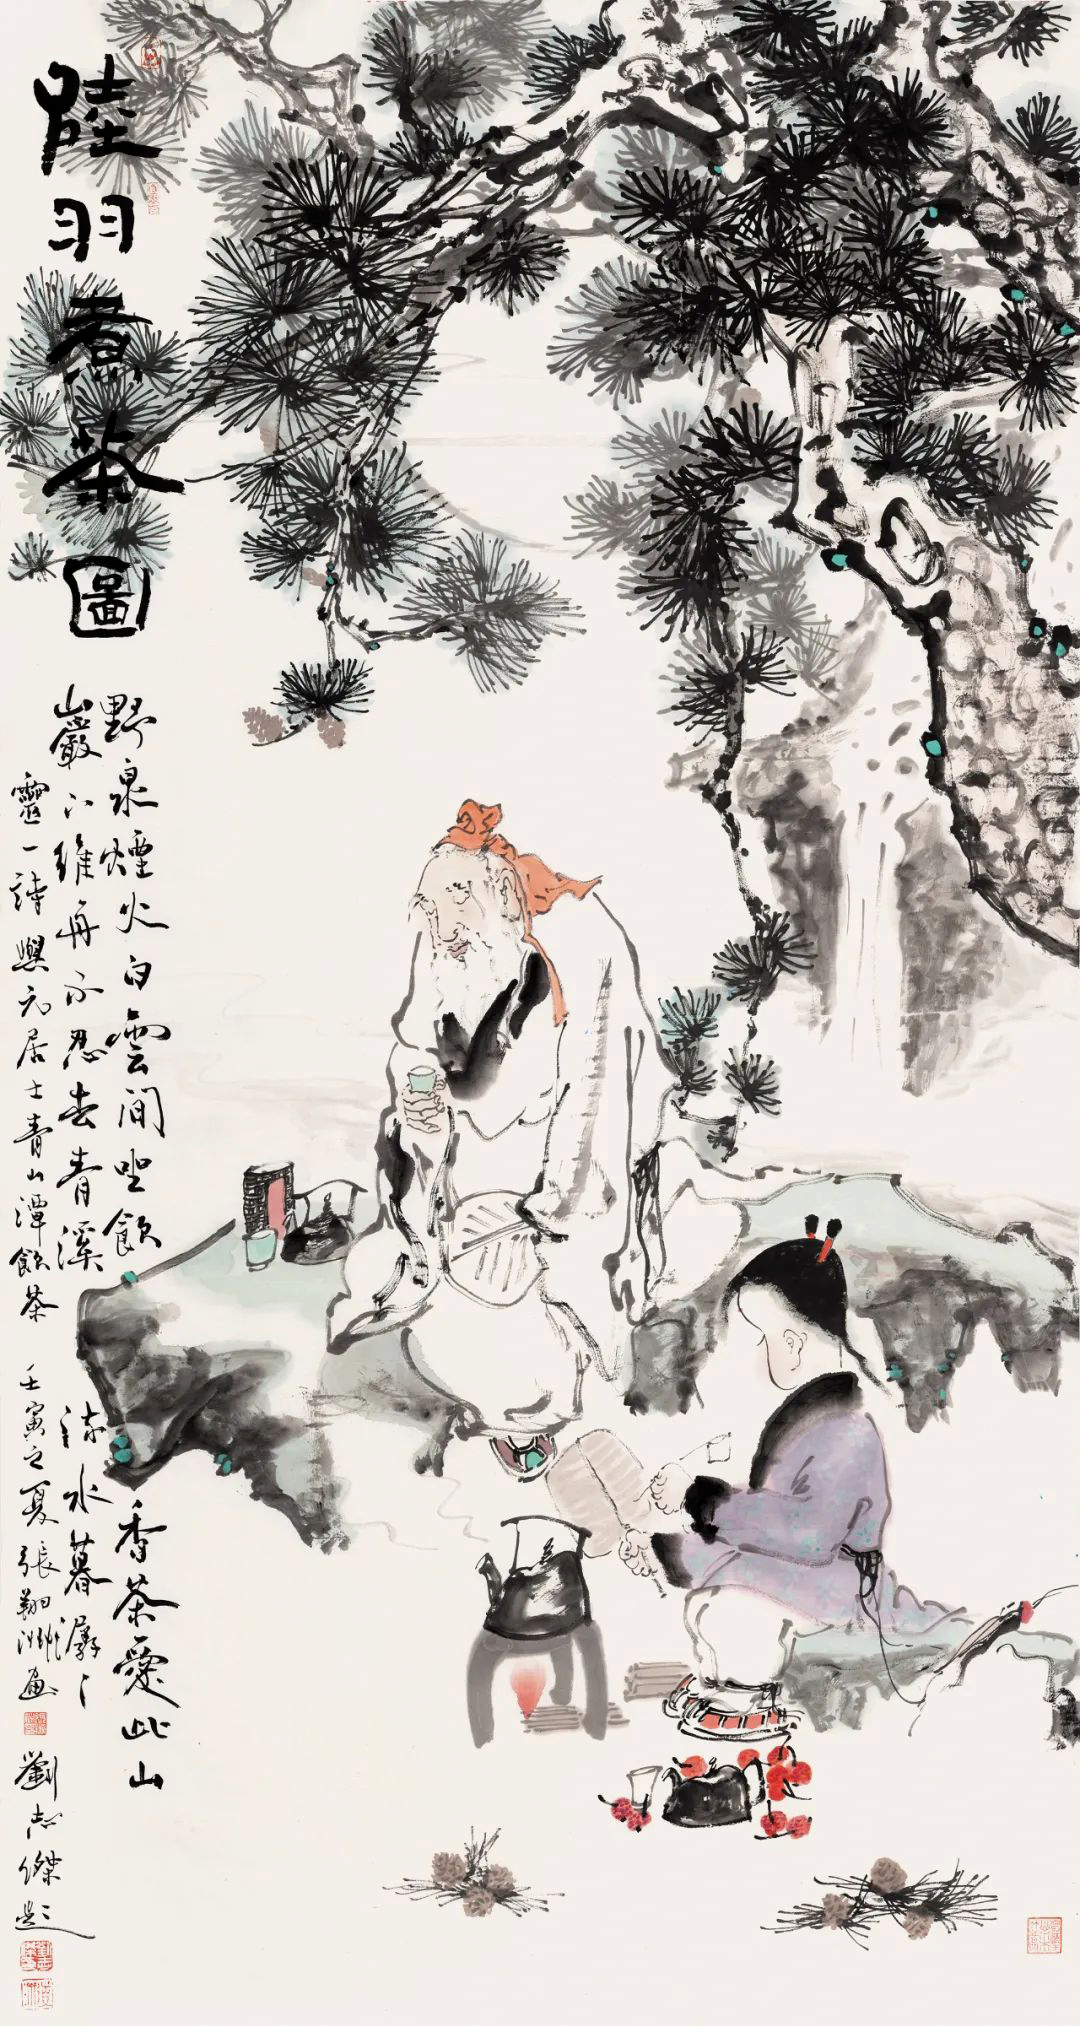 陸羽煮茶圖
野泉煙火白雲間坐飲香茶愛此山
巖下維舟不忍去青溪流水暮潺々
靈一詩與元居士青山潭飲茶 壬寅之夏張翔洲画 劉志傑題